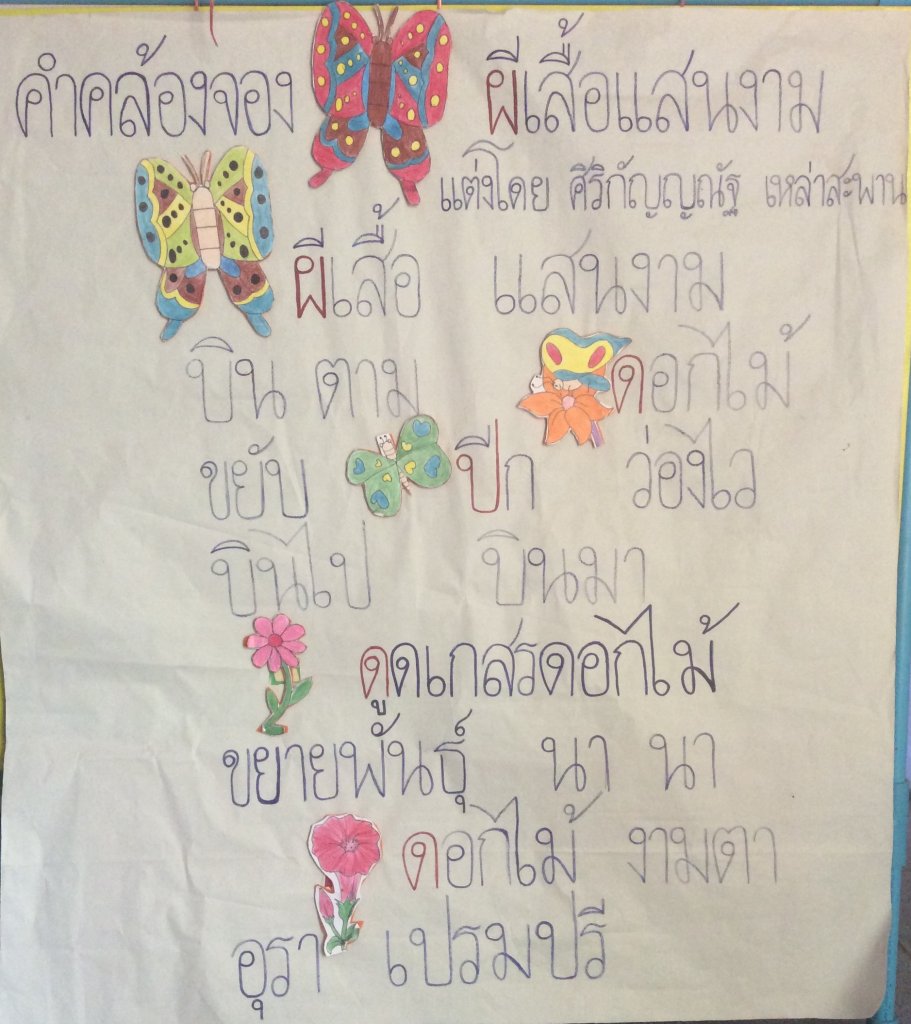 คำคล้องจอง ผีเสื้อแสนงาม
แต่งโดย ศิริกัญญณัฐ เหล่าสะพาน
ผีเสื้อ แสนงาม
บิน ตาม ดอกไม้
ขยับ ปีก ว่องไว
บินไป บินมา
ดูดเกสรดอกไม้
ขยายพันธุ์ นา นา
ดอกไม้ งามตา
อุรา เปรมปรี